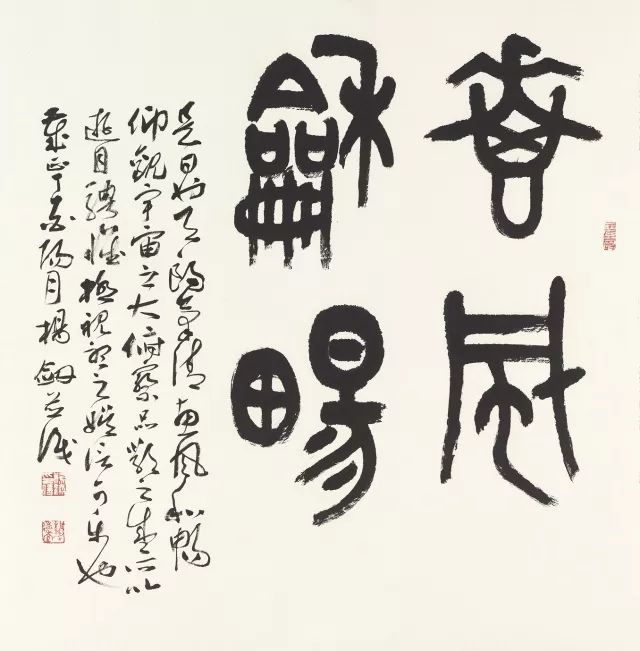 惠風
龢暢
是日也天朗氣清惠風和暢
仰觀宇宙之大俯察品類之盛所以
遊目騁懷極視聽之娛信可樂也
歲在丁酉陽月楊劍識